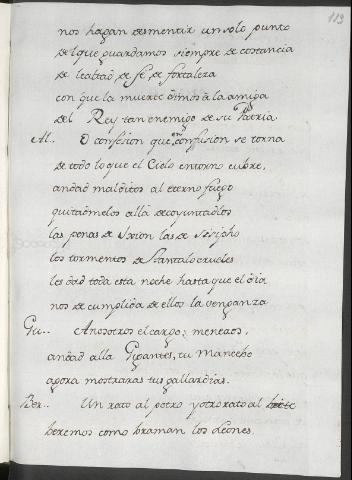 113
nos hagan desmentir un solo punto
del que guardamos siempre de costancia
de lealtad de fé, de fortaleza
con que la muerte dimos à la amiga
del Rey tan enemigo de su Patria
Al.. O confesion que en confusion se torna
de todo lo que el Cielo entorno cubre,
andad malditos al eterno fuego
quitadmelos allà decoyuntadlos
las penas de Ixion las de Sisipho
los tormentos de Stantalo crueles
les dad toda esta noche hasta que el dia
nos de cumplida de ellos la venganza
Gu.. A nosotros el cargo; meneaos,
andad alla Gigantes, tu Mancebo
agora mostraras tus gallardias.
Ber.. Un rato al potro y otro rato al
beremos como braman los Leones.